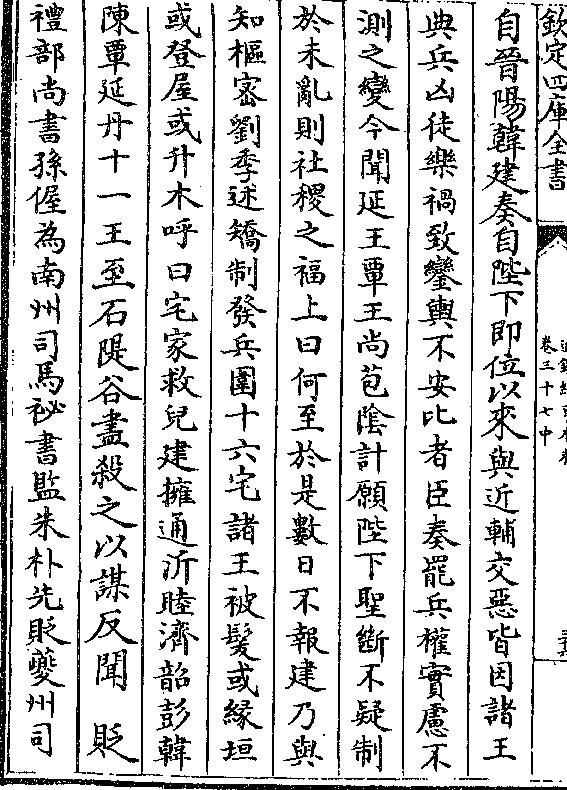 欽定四庫全書
卷三十七中
自晉陽韓建奏自陛下即位以來與近輔交惡皆因諸王
典兵凶徒樂禍致鑾輿不安比者臣奏罷兵權實慮不
測之變今聞延王覃王尚苞陰計願陛下聖斷不疑制
於未亂則社稷之福上曰何至於是數日不報建乃與
知樞密劉季述矯制發兵圍十六宅諸王被髮或緣垣
或登屋或升木呼曰宅家救兒建擁通沂睦濟韶彭韓
陳覃延丹十一王至石隄谷盡殺之以謀反聞 貶
禮部尚書孫偓為南州司馬祕書監朱朴先貶夔州司